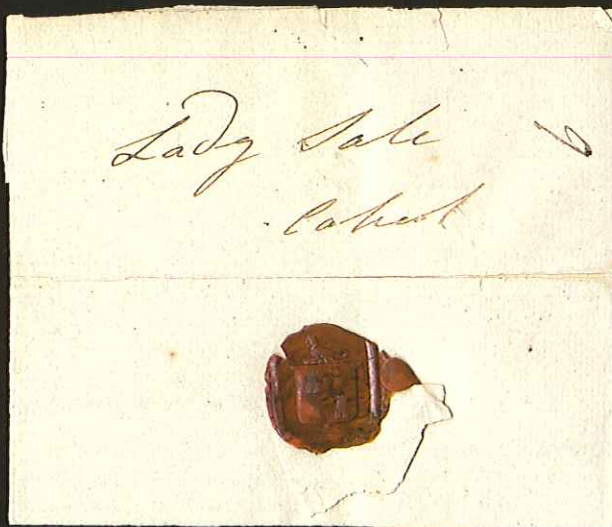 Lady Sale
Cabul
6